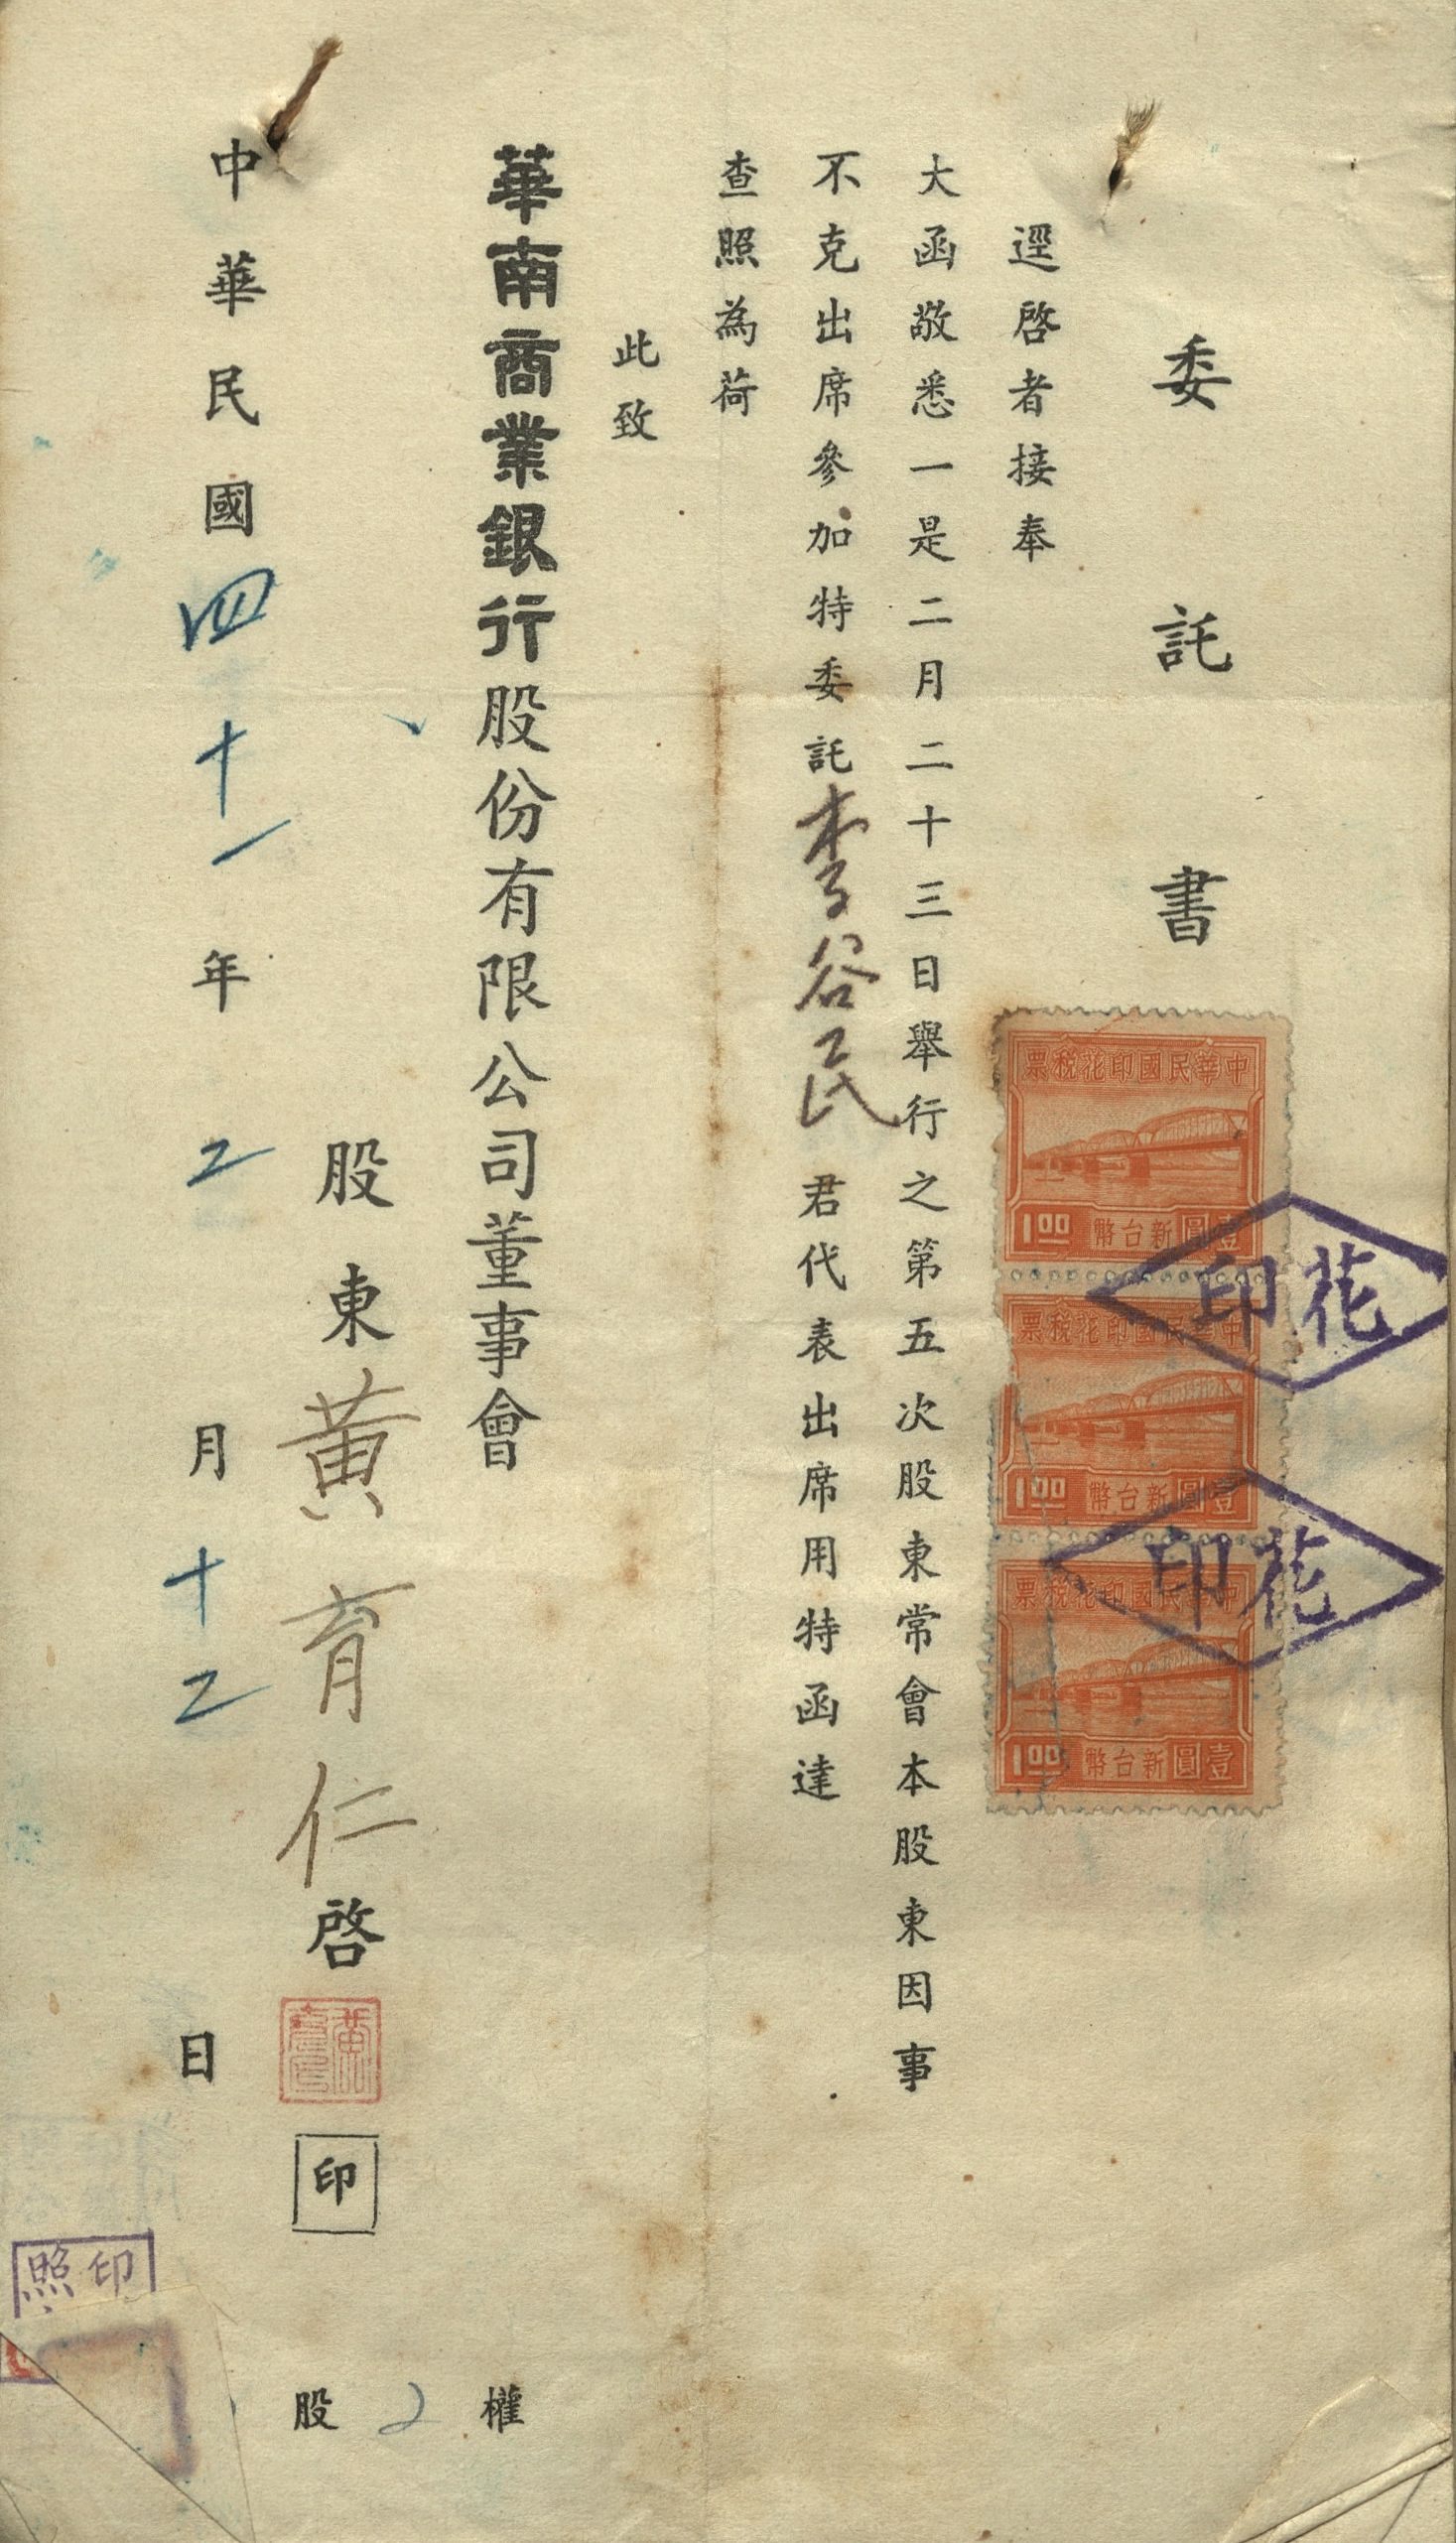 委託書
逕啓者接奉
大函敬悉一是二月二十三日舉行之第五次股東常會本股東因事
不克出席參加特委託李谷民君代表出席用特函達
查照為荷
此致
華南商業銀行股份有限公司董事會
股東黃育仁啓印
權2股
中華民國四十一年2月十2日
中華民國印花稅票
壹圓新台幣
1.00
中華民國印花稅票
壹圓新台幣
1.00
中華民國印花稅票
壹圓新台幣
1.00
花印
花印
印照